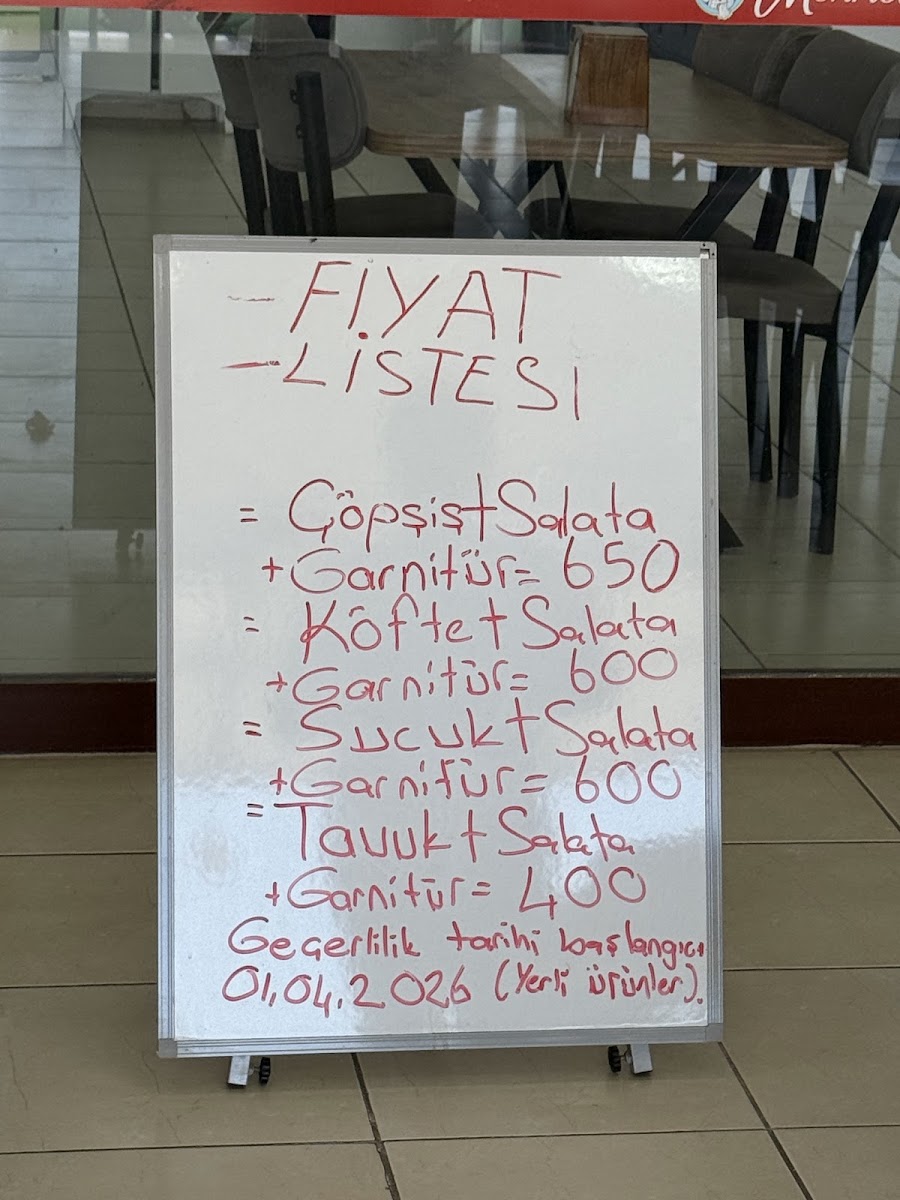 - FİYAT
- LİSTESİ
= Çöpşiş+Salata
+Garnitür= 650
= Köfte+Salata
+Garnitür= 600
= Sucuk+Salata
+Garnitür= 600
= Tavuk+Salata
+Garnitür= 400
Geçerlilik tarihi başlangıcı
01.04.2026 (Yerli ürünler).